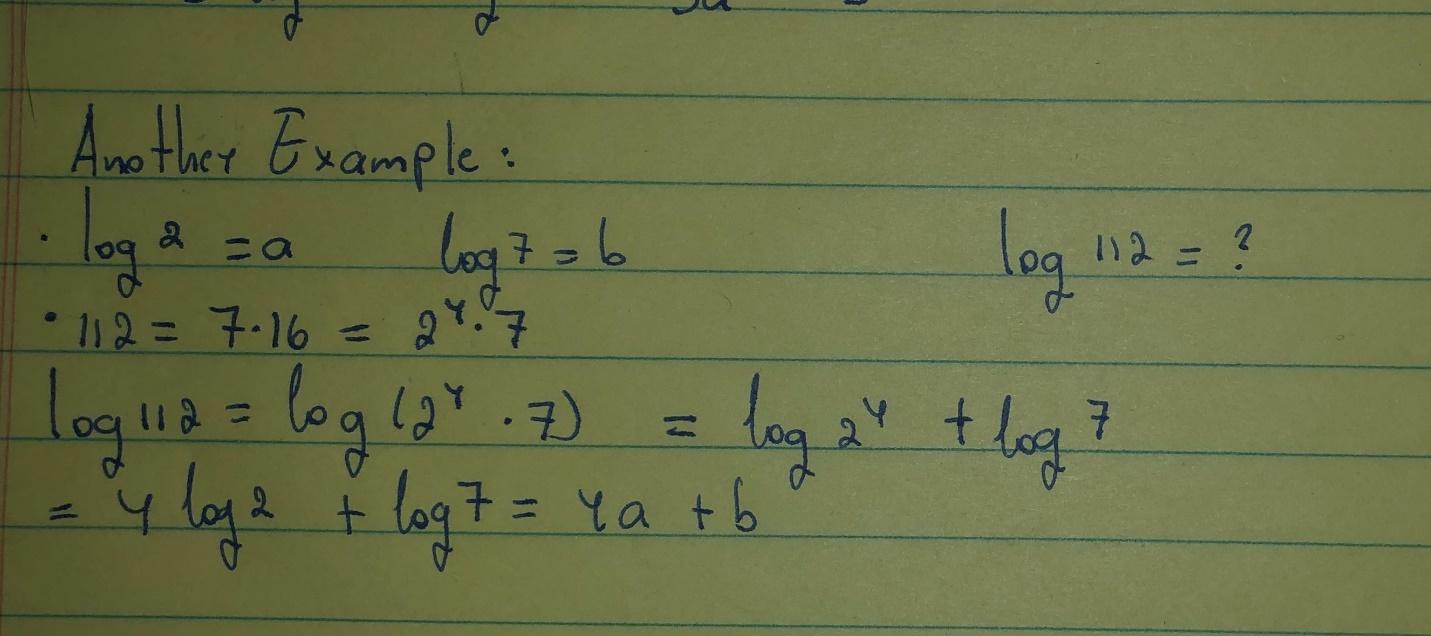 Another Example:
· log 2 = a log 7 = b log 112 = ?
· 112 = 7·16 = 2⁴·7
log 112 = log (2⁴ · 7) = log 2⁴ + log 7
= 4 log 2 + log 7 = 4a + b